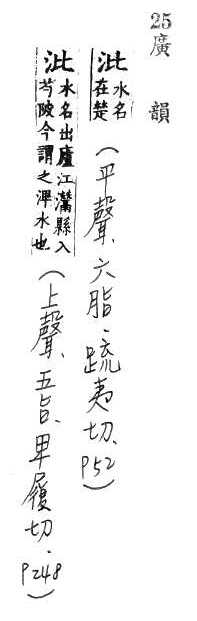 25廣韻
沘 水名在楚 (平聲、六脂、疏夷切、P52)
沘 水名出廬江灊縣入芍陂今謂之渒水也 (上聲、五旨、卑履切、P248)